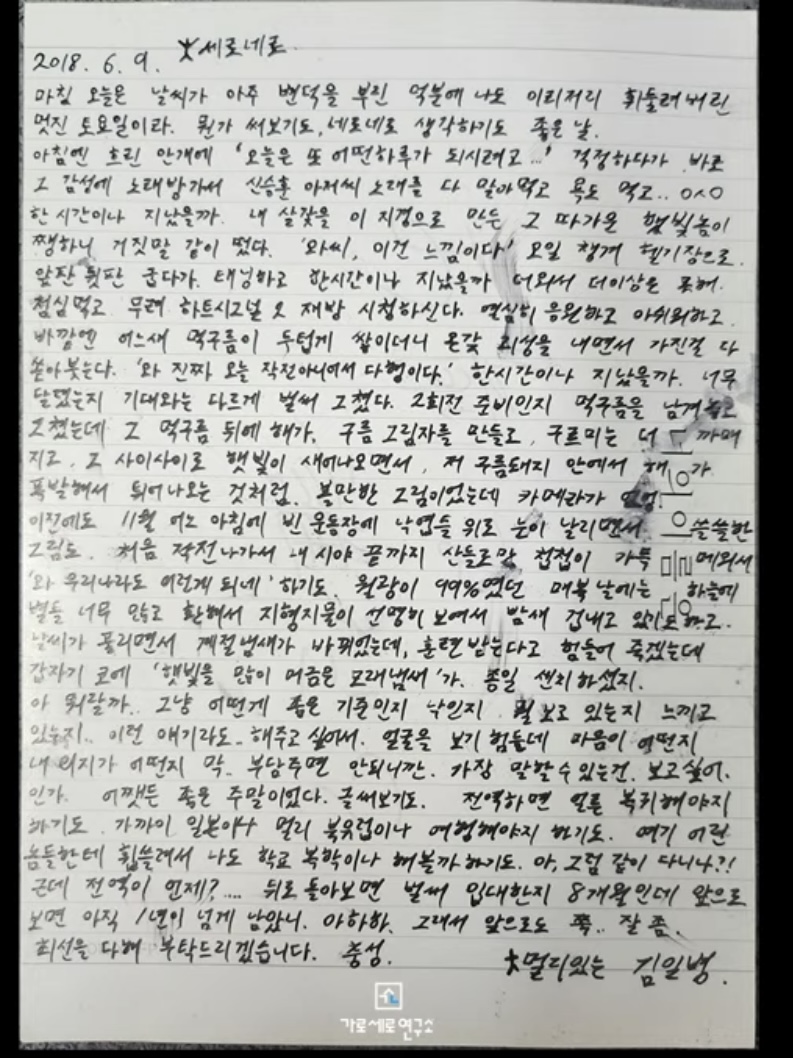 大세로네로
2018. 6. 9.
마침 오늘은 날씨가 아주 변덕을 부린 덕분에 나도 이리저리 휘둘려버린
멋진 토요일이라. 뭔가 써보기도, 네로네로 생각하기도 좋은 날.
아침엔 흐린 안개에 '오늘은 또 어떤하루가 되시려고...' 걱정하다가 바로
그 감성에 노래방가서 신승훈 아저씨 노래를 다 말아먹고 욕도 먹고.. ㅇㅅㅇ
한시간이나 지났을까. 내 살갗을 이 지경으로 만든 그 따가운 햇빛놈이
쨍하니 거짓말 같이 떴다. '와씨, 이건 느낌이다!' 오일 챙겨 헬기장으로.
앞판 뒷판 굽다가. 태닝하고 한시간이나 지났을까 더워서 더이상은 못해.
점심먹고 무려 하트시그널 2 재방 시청하신다. 열심히 응원하고 아쉬워하고.
바깥엔 어느새 먹구름이 두텁게 쌓이더니 온갖 괴성을 내면서 가진걸 다
쏟아붓는다. '와 진짜 오늘 작전아니여서 다행이다.' 한시간이나 지났을까. 너무
달랬는지 기대와는 다르게 벌써 그쳤다. 2회전 준비인지 먹구름을 남겨놓고
그쳤는데 그 먹구름 뒤에 해가. 구름 그림자를 만들고, 구르미는 더 까매
지고, 그 사이사이로 햇빛이 새어나오면서, 저 구름돼지 안에서 해가
폭발해서 튀어나오는 것처럼. 볼만한 그림이었는데 카메라가
이전에도 11월 어느 아침에 빈 운동장에 낙엽들 위로 눈이 날리면서 쓸쓸한
그림도. 처음 작전나가서 내 시야 끝까지 산들로만 첩첩이 가득 메워서
'와 우리나라도 이런게 되네' 하기도. 월광이 99%였던 매복 날에는 하늘에
별들 너무 많고 환해서 지형지물이 선명히 보여서 밤새 겁내고 있기도 하고.
날씨가 풀리면서 계절냄새가 바뀌었는데, 훈련 받는다고 힘들어 죽겠는데
갑자기 코에 '햇빛을 많이 머금은 모래냄새'가. 종일 센치하셨지.
아 뭐랄까. 그냥 어떤게 좋은 기준인지 낙인지 뭘 보고 있는지 느끼고
있는지.. 이런 얘기라도.. 해주고 싶어서. 얼굴을 보기 힘든데 마음이 어떤지
내 의지가 어떤지 막.. 부담주면 안되니깐. 가장 말할수있는건. 보고싶어.
인가. 어쨌든 좋은 주말이었다. 글써보기도. 전역하면 얼른 복귀해야지
하기도. 가까이 일본이나 멀리 북유럽이나 여행해야지 하기도. 여기 어린
놈들한테 휩쓸려서 나도 학교 복학이나 해볼까 하기도. 아, 그럼 같이 다니나?!
근데 전역이 언제?.... 뒤로 돌아보면 벌써 입대한지 8개월인데 앞으로
보면 아직 1년이 넘게 남았니. 아하하. 그래서 앞으로도 쭉.. 잘 좀.
최선을 다해 부탁드리겠습니다. 충성.
大멀리있는 김일병.
미의이름은
가로세로연구소